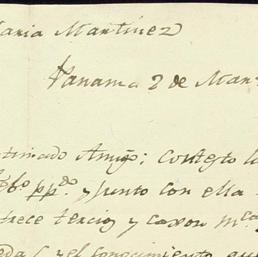 aria Martinez
Panama 2 de Mar
timado Amigo; Contexto la
Feb.o pp.do y Junto con ella
trece tercios y caxon m.ca
y el conocimiento que